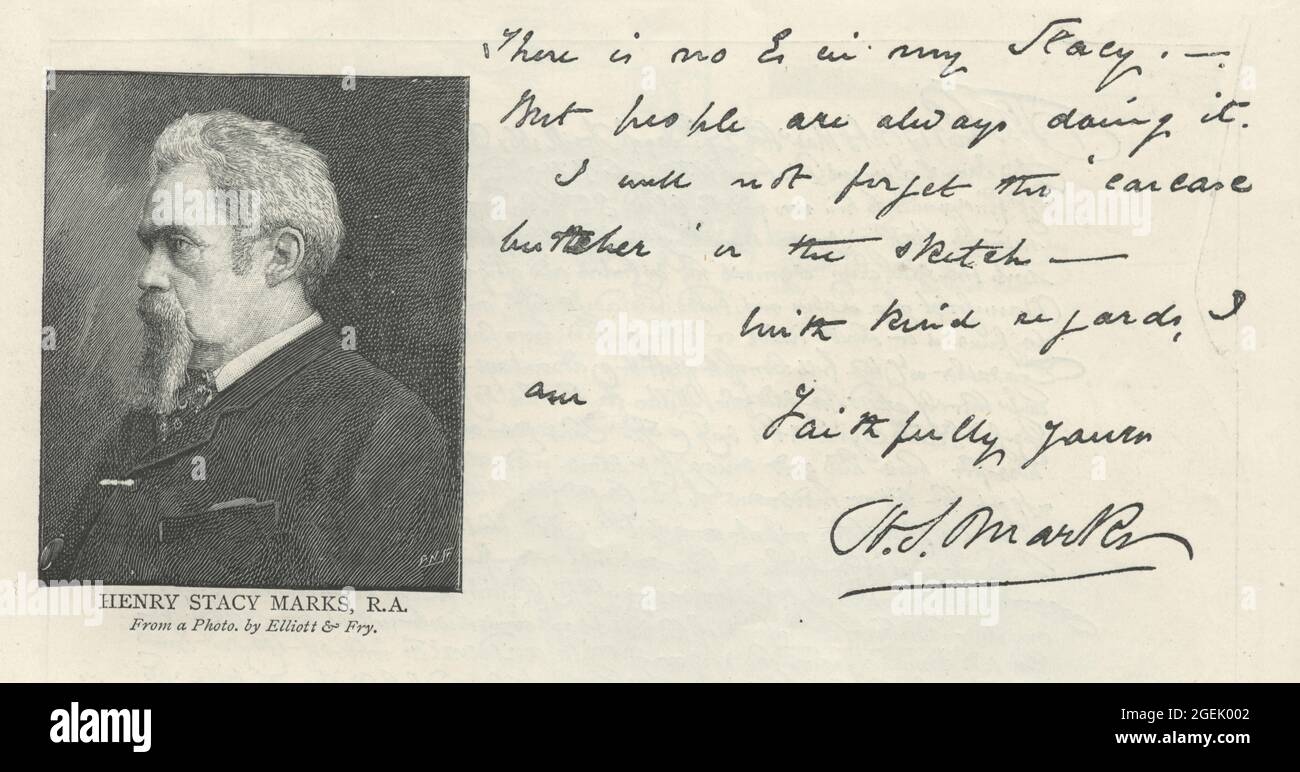 There is no E in my Stacy. —
But people are always doing it.
I will not forget the 'carcase
butcher' in the sketch —
With kind regards, I
am
Faithfully yours
H. S. Marks
P.N.F.
HENRY STACY MARKS, R.A.
From a Photo. by Elliott & Fry.
alamy
Image ID: 2GEK002
www.alamy.com